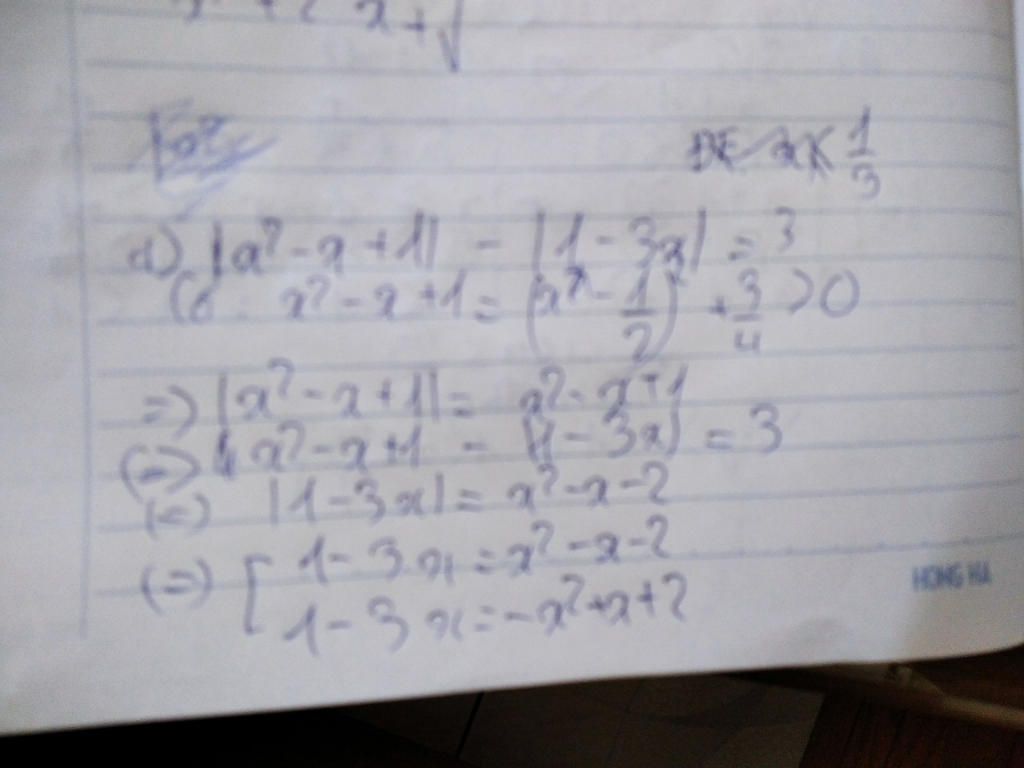 x + √
ĐK x < 1/3
a) |x² - x + 1| - |1 - 3x| = 3
Có: x² - x + 1 = (x² - 1/2)² + 3/4 > 0
=> |x² - x + 1| = x² - x + 1
(=) x² - x + 1 - |1 - 3x| = 3
(=) |1 - 3x| = x² - x - 2
(=) [ 1 - 3x = x² - x - 2
1 - 3x = -x² + x + 2
HONG HA